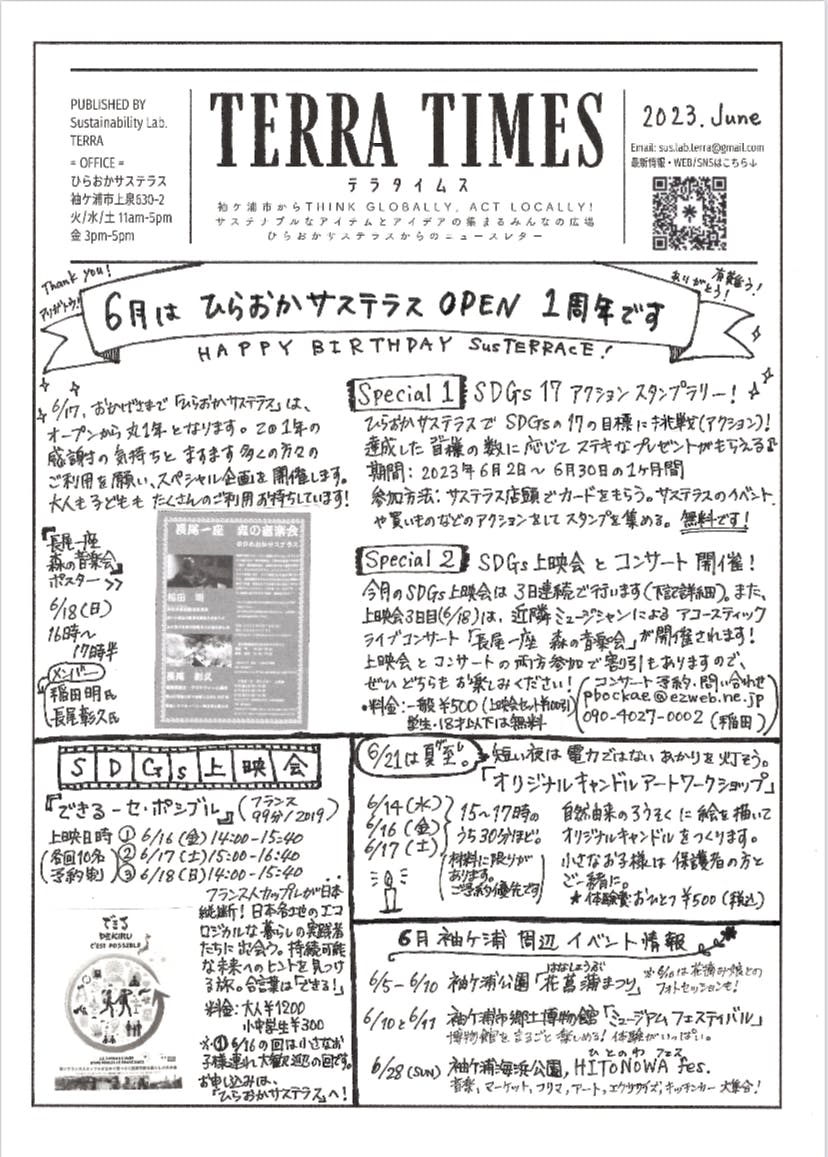 PUBLISHED BY
Sustainability Lab.
TERRA
= OFFICE =
ひらおかサステラス
袖ケ浦市上泉630-2
火/水/土 11am-5pm
金 3pm-5pm
TERRA TIMES
テラタイムス
袖ケ浦市からTHINK GLOBALLY, ACT LOCALLY!
サステナブルなアイテムとアイデアの集まるみんなの広場
ひらおかサステラスからのニュースレター
2023. June
Email: sus.lab.terra@gmail.com
最新情報・WEB/SNSはこちら↓
Thank you!
アリガトウ!
6月は ひらおかサステラス OPEN 1周年です
有難う!
ありがとう!
HAPPY BIRTHDAY SusTERRAcE!
6/17、おかげさまで「ひらおかサステラス」は、
オープンから丸1年となります。この1年の
感謝の気持ちと ますます多くの方々の
ご利用を願い、スペシャル企画を開催します。
大人も子どもも たくさんのご利用お待ちしています!
『長尾一座
森の音楽会』
ポスター >>
6/18(日)
16時〜
17時半
メンバー
稲田明氏
長尾彰久氏
長尾一座 森の音楽会
@ひらおかサステラス
稲田 明
長尾 彰久
Special 1 SDGs 17 アクション スタンプラリー!
ひらおかサステラスで SDGsの17の目標に挑戦(アクション)!
達成した皆様の数に応じて ステキなプレゼントがもらえる♪
期間: 2023年6月2日〜6月30日の1ヶ月間
参加方法: サステラス店頭でカードをもらう。サステラスのイベント、
や買いものなどのアクションをして スタンプを集める。無料です!
Special 2 SDGs上映会 と コンサート 開催!
今月のSDGs上映会は 3日連続で行います(下記詳細)。また、
上映会3日目(6/18)は、近隣ミュージシャンによる アコースティック
ライブコンサート「長尾一座 森の音楽会」が開催されます!
上映会とコンサートの両方参加で割引もありますので、
ぜひどちらもお楽しみください!
•料金:一般¥500(上映会セット¥100引)
学生・18才以下は無料
コンサート予約・問い合わせ
pbockae@ezweb.ne.jp
090-4027-0002 (稲田)
SDGs上映会
『できる―セ・ポシブル』(フランス 99分/2019)
上映日時 ① 6/16(金)14:00-15:40
(各回10名 ② 6/17(土)15:00-16:40
予約制) ③ 6/18(日)14:00-15:40
フランス人カップルが日本
縦断! 日本各地のエコ
ロジカルな暮らしの実践者
たちに出会う。持続可能
な未来へのヒントを見つけ
る旅。合言葉は「できる!」
料金: 大人¥1200
小中学生¥300
※①6/16の回は小さなお
子様連れ大歓迎の回です。
お申し込みは、
「ひらおかサステラス」へ!
できる
DEKIRU
C'EST POSSIBLE
6/21は夏至。
短い夜は 電力ではない あかりを灯そう。
「オリジナルキャンドルアートワークショップ」
6/14(水)
6/16(金)
6/17(土)
15〜17時の
うち30分ほど。
材料に限りが
あります。
ご予約優先です
自然由来のろうそくに絵を描いて
オリジナルキャンドルをつくります。
小さなお子様は 保護者の方と
ご一緒に。
★体験費:おひとり¥500(税込)
6月 袖ケ浦 周辺 イベント情報
6/5-6/10 袖ケ浦公園「花菖蒲まつり」
はなしょうぶ
※6/10は花摘み娘との
フォトセッションも!
6/10と6/11 袖ケ浦市郷土博物館「ミュージアム フェスティバル」
博物館をまるごと楽しめる!体験がいっぱい。
ひとのわ フェス
6/28(SUN) 袖ケ浦海浜公園, HITONOWA fes.
音楽, マーケット, フリマ, アート, エクササイズ, キッチンカー 大集合!